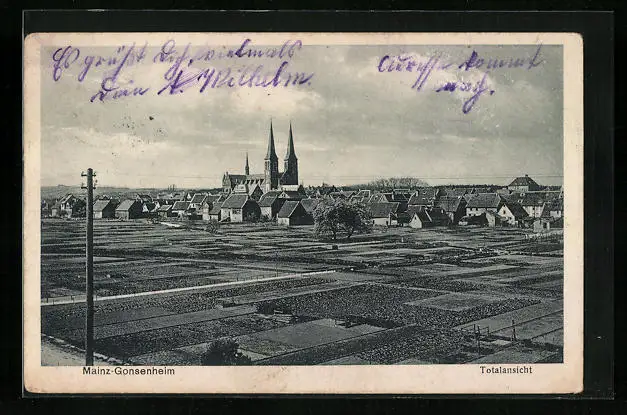 Es grüßt Dich vielmals
Dein Wilhelm
Adresse kommt
nach.
Mainz-Gonsenheim
Totalansicht